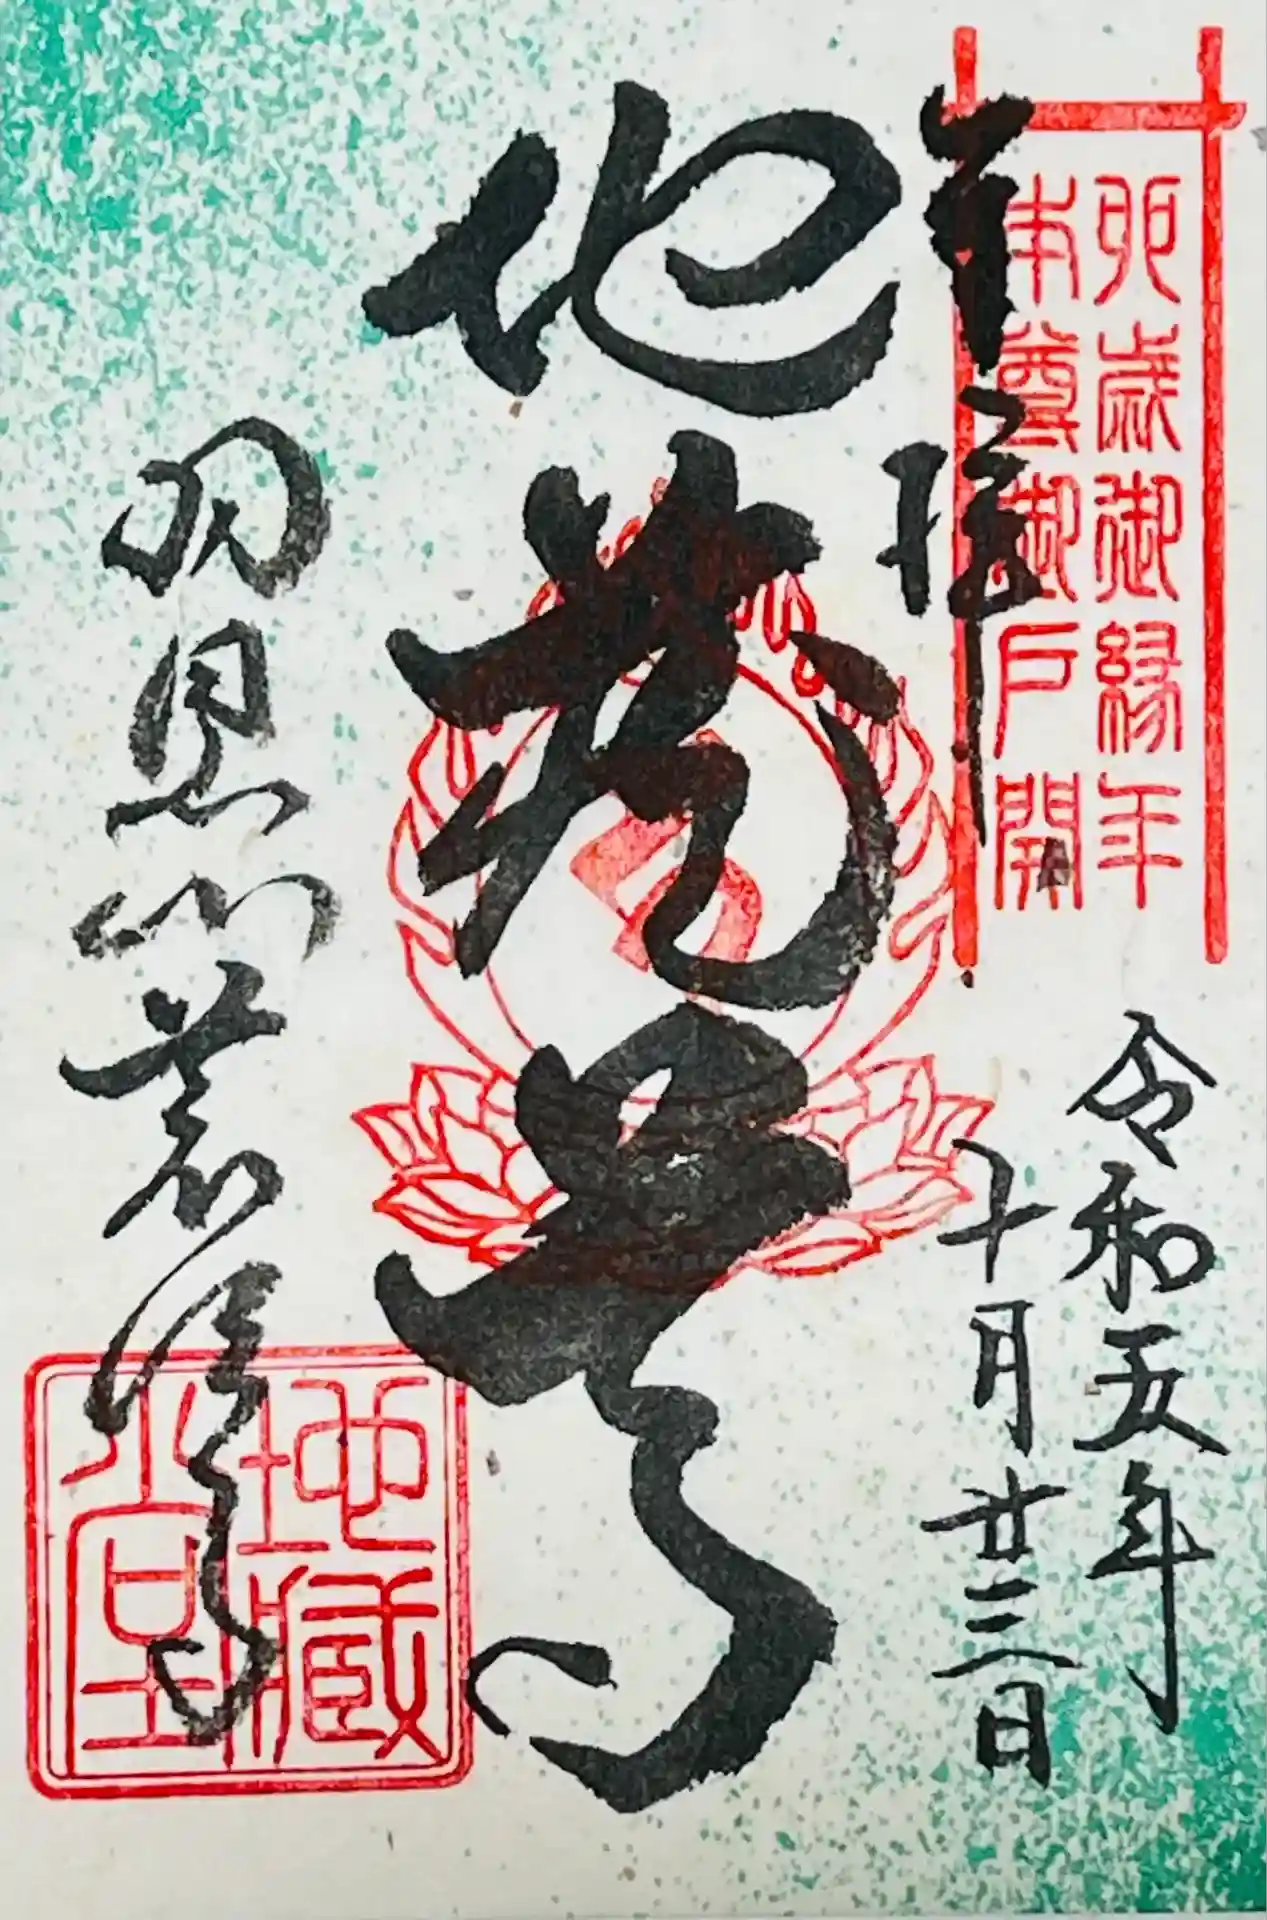 卯歳御縁年
本尊御戸開
奉拝
令和五年
十月廿三日
地蔵尊
羽黒山荒澤寺
地藏堂